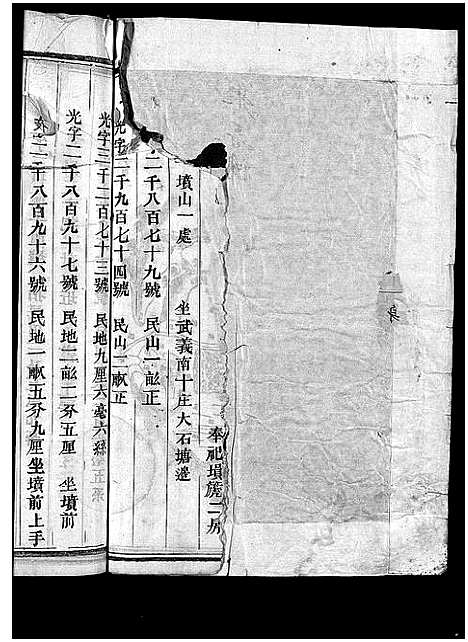 奉祀墳𥱼二夯
墳山一處 坐武義南十庄大石塘邊
二千八百七十九號 民山一畝正
光字二千九百七十四號 民山一畝正
光字三千二百七十三號 民地九厘六毫六絲
光字二千八百九十七號 民地二畝二分五厘 坐墳前
二千八百九十六號 民地一畝五分九厘坐墳前上手